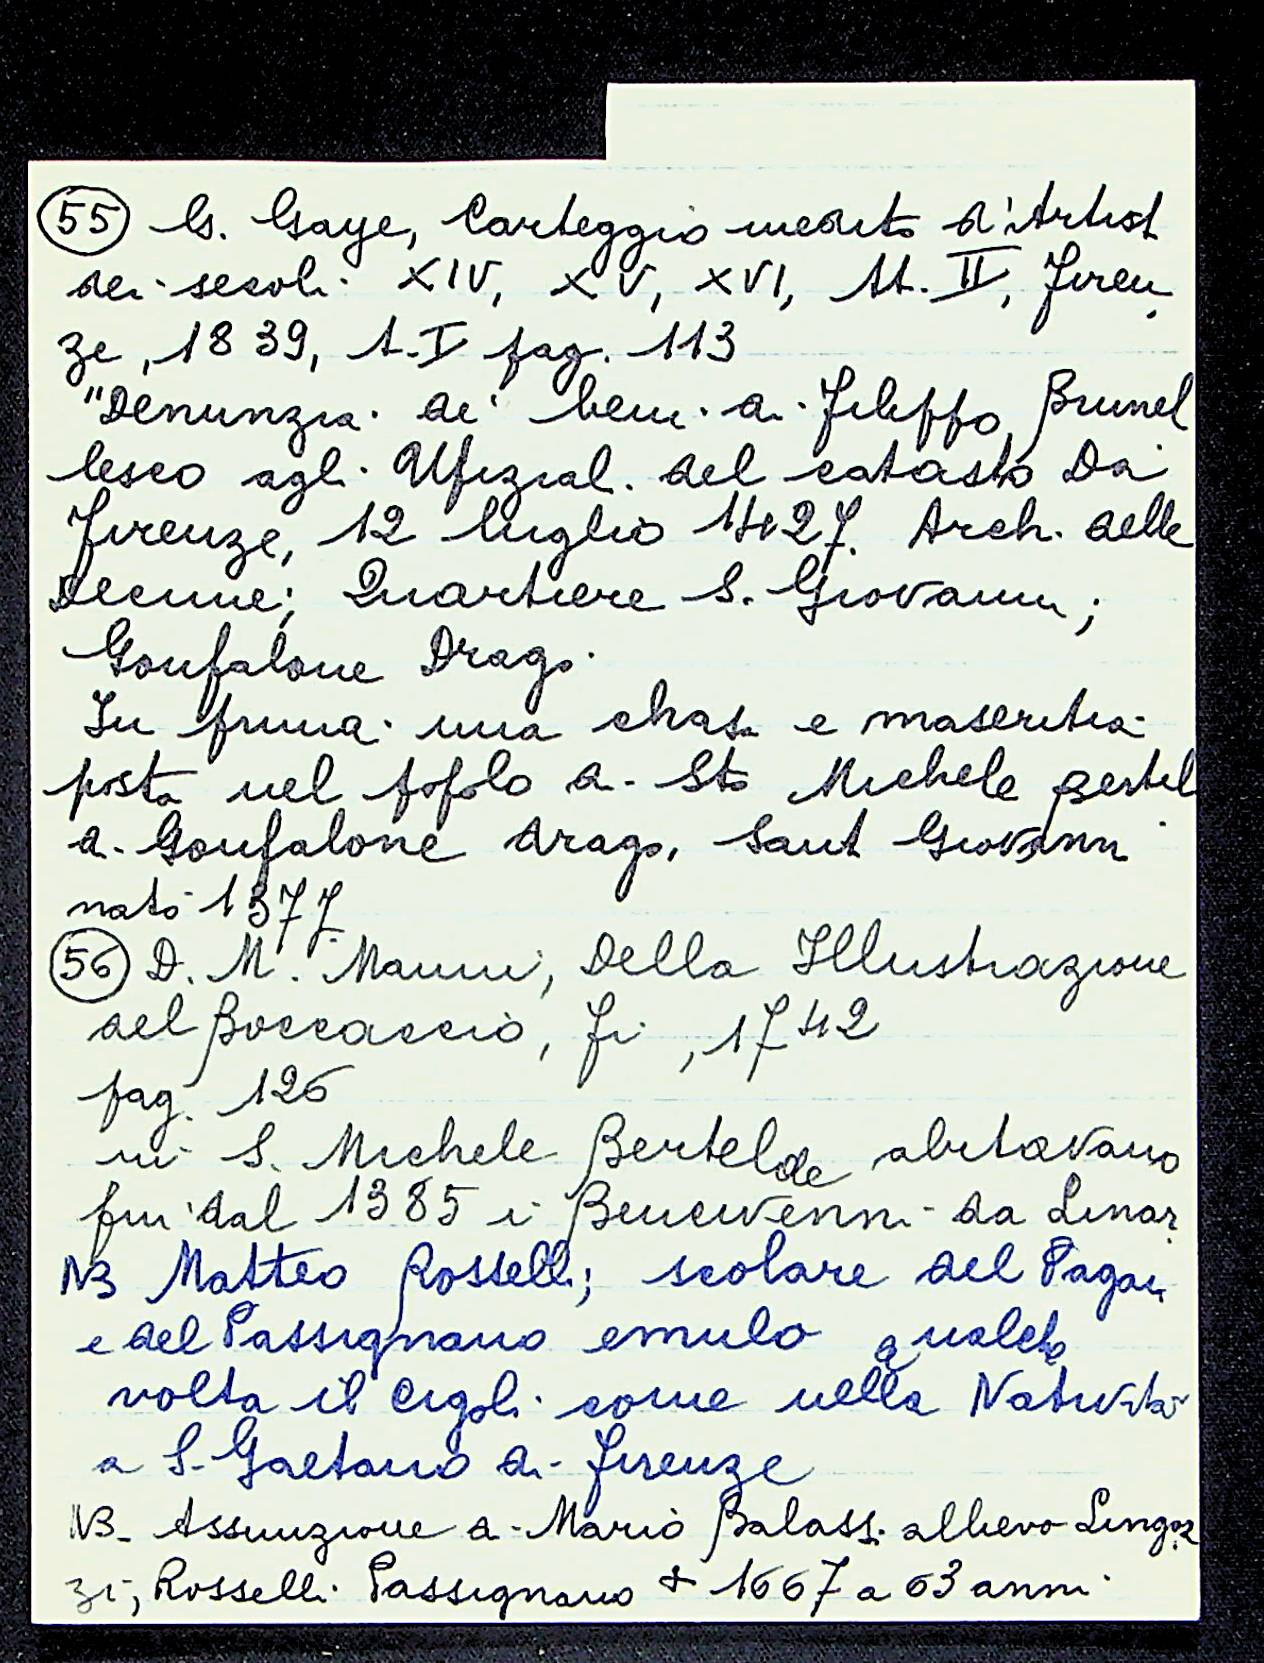 55 G. Gaye, Carteggio inedito d'Artist
dei secoli XIV, XV, XVI, tt. II, Firen
ze, 1839, t. I pag. 113
"Denunzia de' beni di Filippo Brunel
lesco agli Ufizial. del catasto Da
Firenze, 12 luglio 1427. Arch. delle
Decime; Quartiere S. Giovanni;
Gonfalone Drago.
In prima una chasa e maseritia
posta nel popolo di Sto Michele Bertel
di Gonfalone drago, Sant Giovanni
nato 1377
56 D. M. Manni, Della Illustrazione
del Boccaccio, Fi, 1742
pag. 126
in S. Michele Bertelde abitavano
fin dal 1385 i Benevenni da Linar
NB Matteo Rosselli; scolare del Pagani
e del Passignano emulo qualche
volta il Cigoli come nella Natività
a S. Gaetano di Firenze
NB - Assunzione di Mario Balassi allievo Ligoz
zi, Rosselli Passignano + 1667 a 63 anni